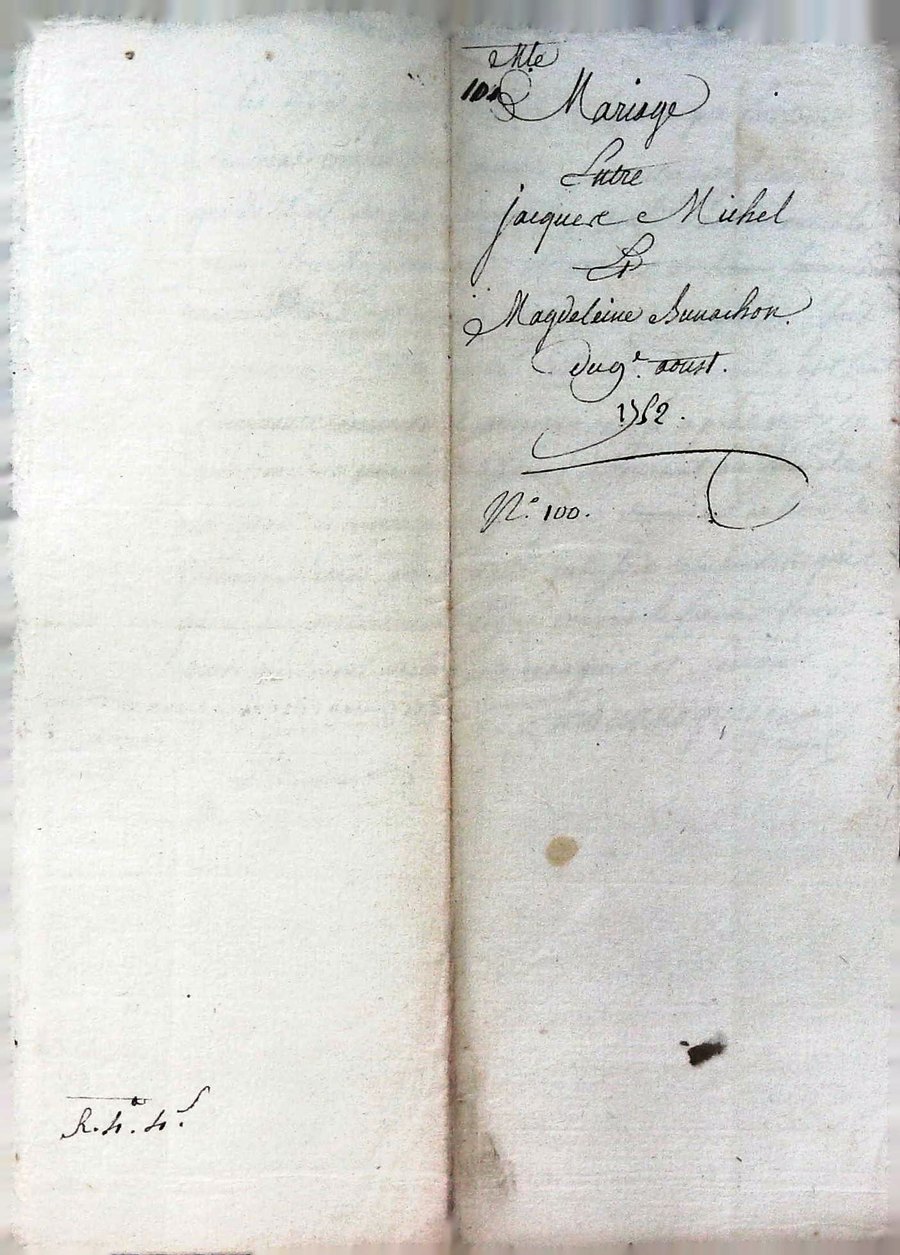 Mte
101
Mariage
Entre
jacques Michel
Et
Magdeleine Bunachon.
du 9e. aoust.
1752.
No. 100.
R. 4. 4.s